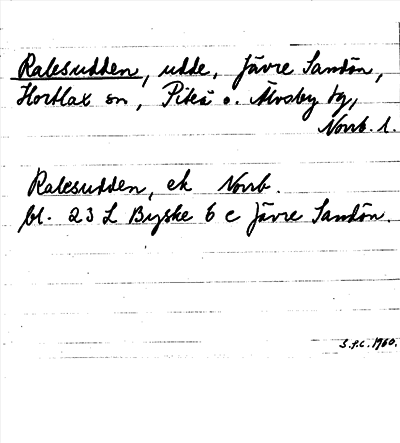 Ralesudden, udde, Jävre Sandön,
Hortlax sn, Piteå o. Älvsby tg,
Norrb. l.
Ralesudden, ek Norrb.
bl. 23 L Byske 6 c Jävre Sandön.
S.F.C. 1960.